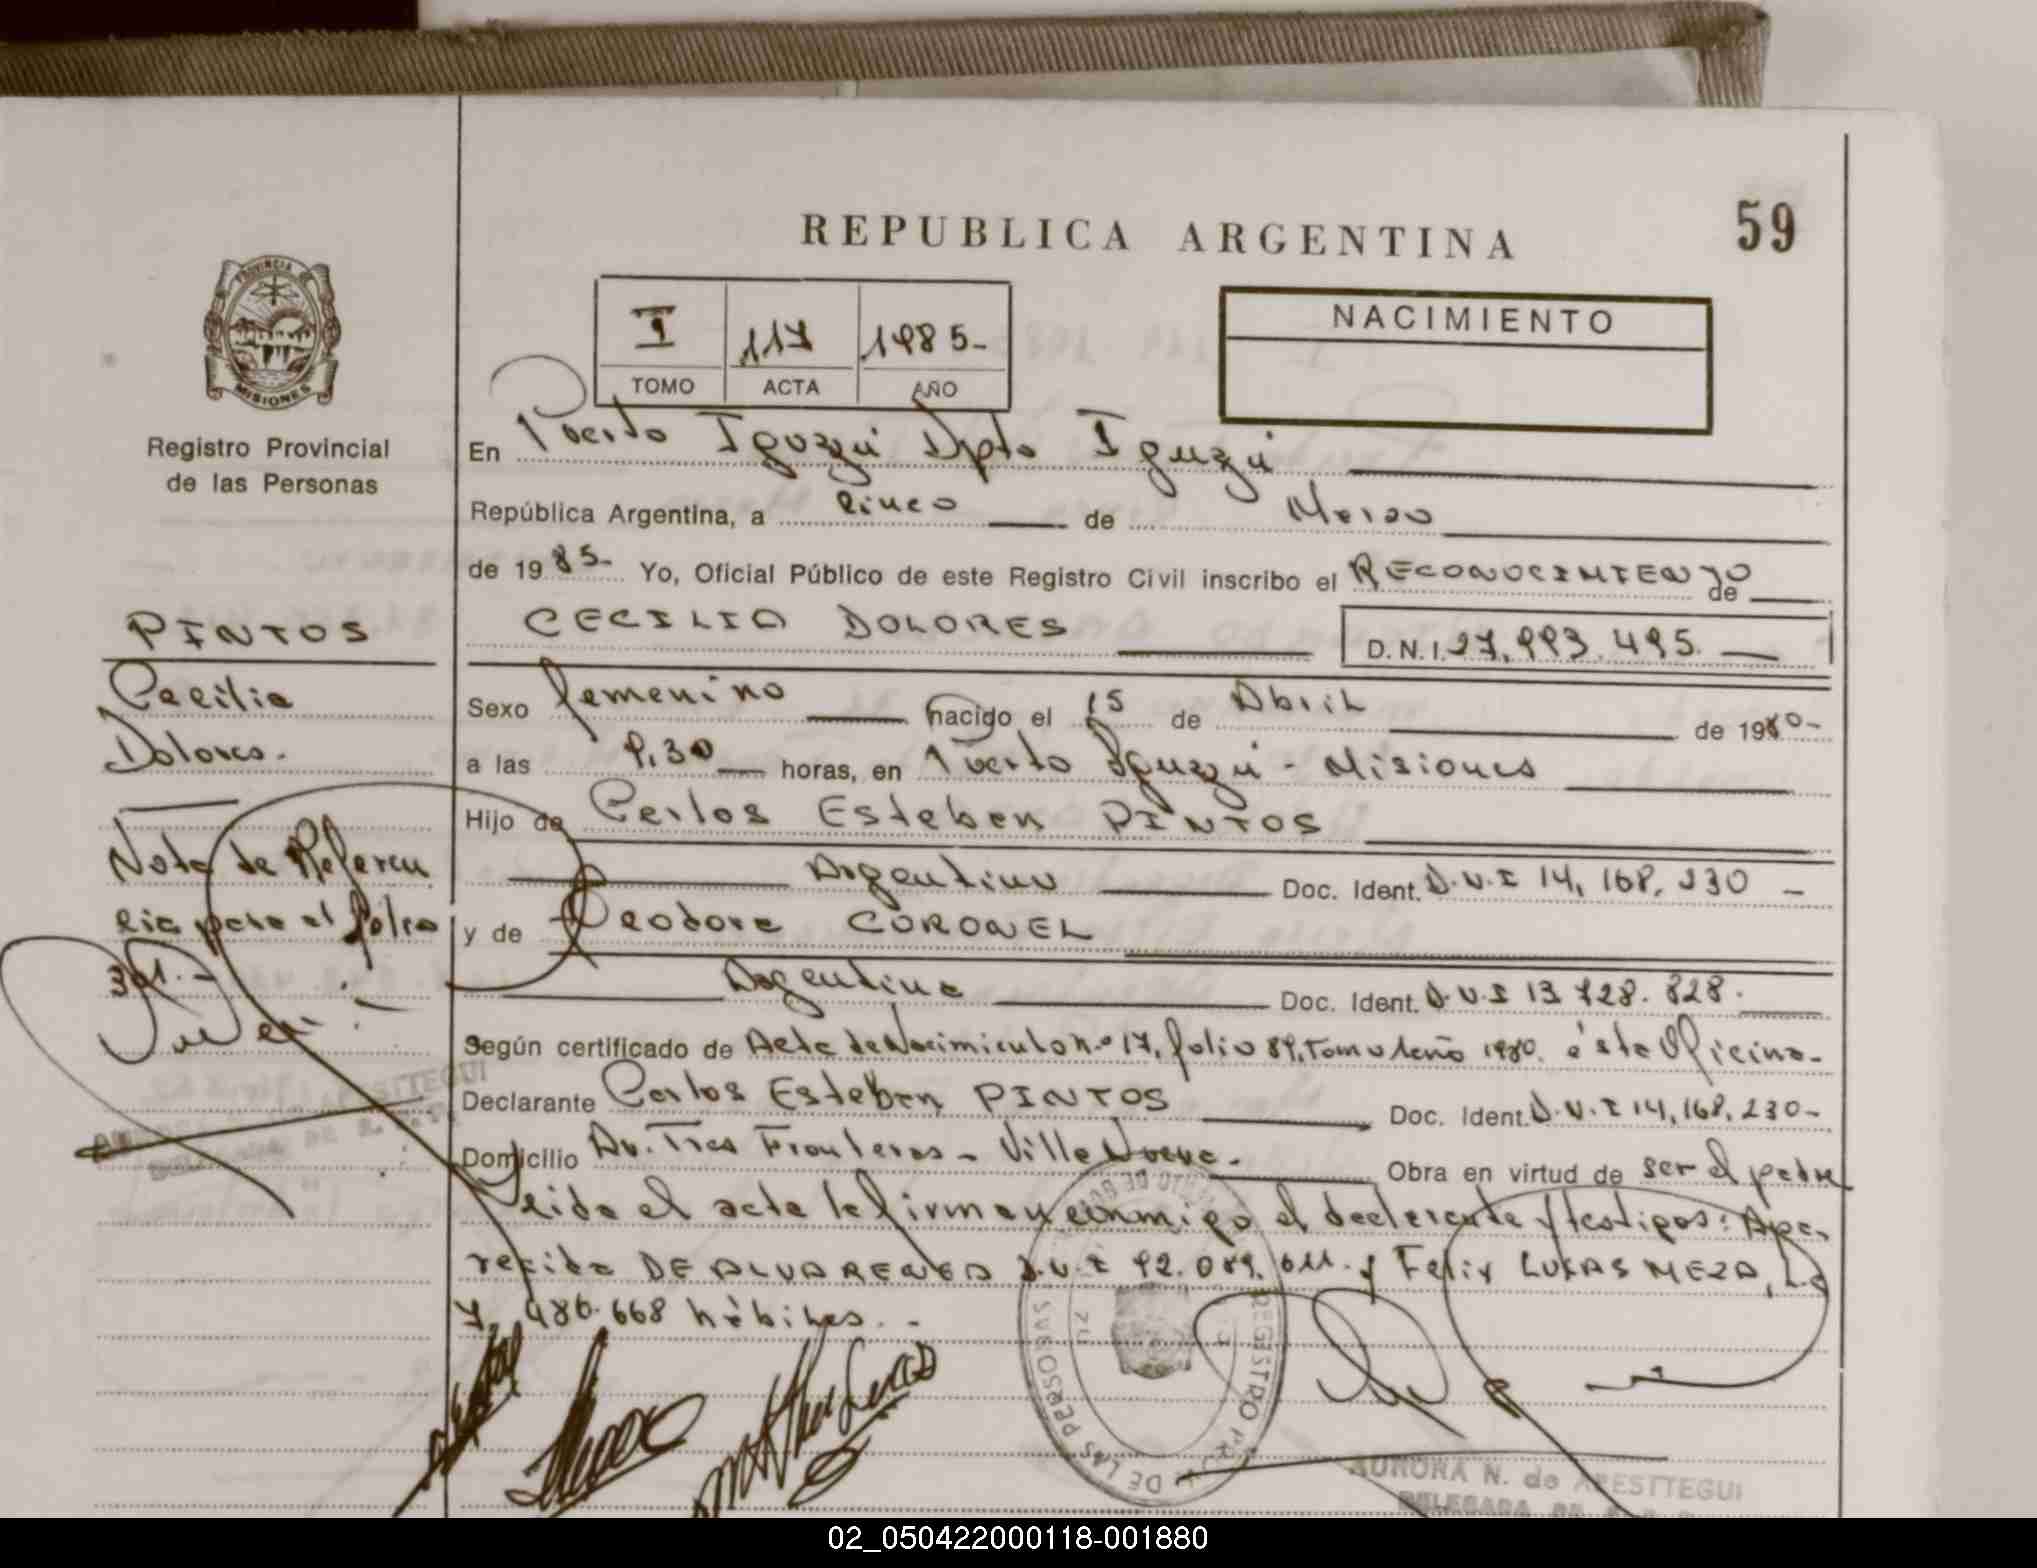 REPUBLICA ARGENTINA
59
PROVINCIA DE
MISIONES
Registro Provincial
de las Personas
I 117 1985-
TOMO ACTA AÑO
NACIMIENTO
En Puerto Iguazú Dpto Iguazú
República Argentina, a Cinco de Marzo
de 1985- Yo, Oficial Público de este Registro Civil inscribo el RECONOCIMIENTO de
CECILIA DOLORES D.N.I. 27.993.495.
PINTOS
Cecilia
Dolores.
Sexo femenino nacido el 15 de Abril de 1980-
a las 9,30 horas, en Puerto Iguazú - Misiones
Hijo de Carlos Esteban PINTOS
Argentino Doc. Ident. D.N.I 14,168,230 -
y de Teodora CORONEL
Argentina Doc. Ident. D.N.I 13.728.828.
Nota de Referen
cia para el folio
301.-
Según certificado de Acta de Nacimiento nº 17, folio 89, tomo I año 1980. ésta Oficina.-
Declarante Carlos Esteban PINTOS Doc. Ident. D.N.I 14,168,230-
Domicilio Av. Tres Fronteras - Villa Nueva. Obra en virtud de ser el padre
Leida el acta la firman conmigo el declarante y testigos: Apa-
recida DE ALVARENGA D.N.I 92.089.011. y Felix LUKAS MEZA, L.E
7.486.668 hábiles. -
REGISTRO DE LAS PERSONAS
AURORA N. de ARESTTEGUI
DELEGADA
02_050422000118-001880